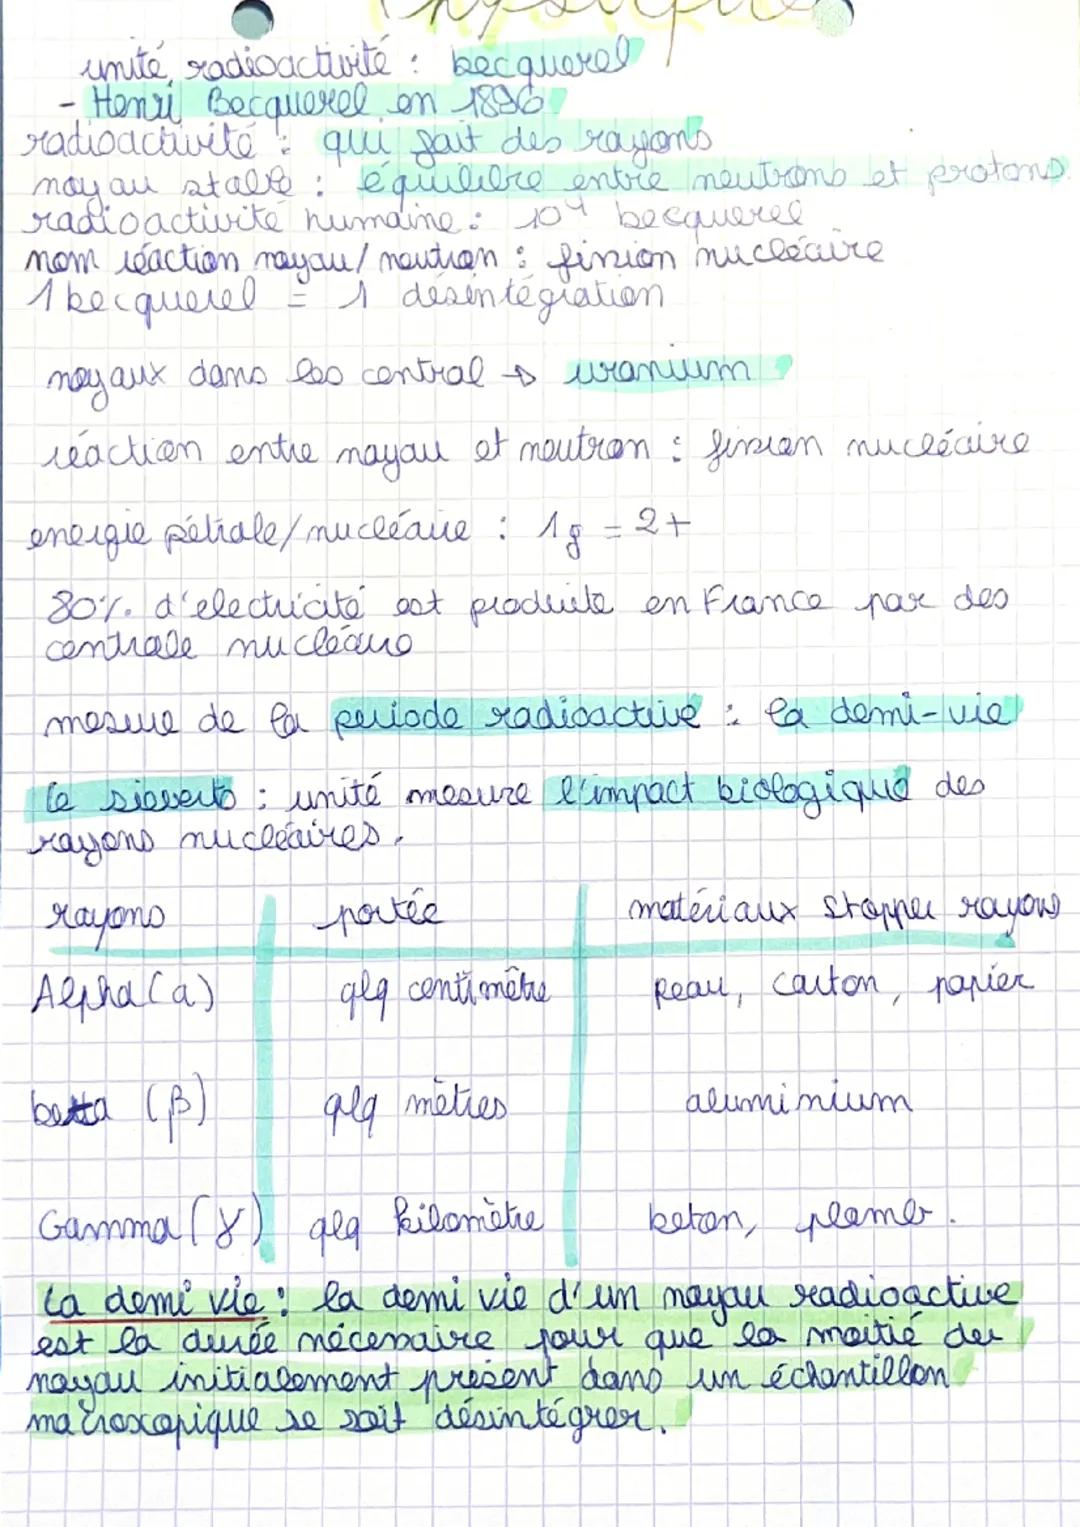 Physique
unité radioactivité : becquerel
- Henri Becquerel en 1896
radioactivité : qui fait des rayons
noyau stable : équilibre entre neutrons et protons.
radioactivité humaine : 10⁴ becquerel
nom réaction noyau/neutron : finsion nucléaire
1 becquerel = 1 désintégration
noyaux dans les central → uranium
réaction entre noyau et neutron : finsion nucléaire
energie pétrole/nucléaire : 1g = 2t
80% d'electricité est produite en France par des
centrale nucléaire
mesure de la periode radioactive : la demi-vie
le sieverts : unité mesure l'impact biologique des
rayons nucléaires.
rayons portée matériaux stopper rayons
Alpha (a) qlq centimètre peau, carton, papier
beta (β) qlq mètres aluminium
Gamma (γ) qlq kilomètre beton, plomb.
La demi vie : la demi vie d'un noyau radioactive
est la durée nécessaire pour que la moitié des
noyau initialement présent dans un échantillon
macroscopique se soit désintégrer.